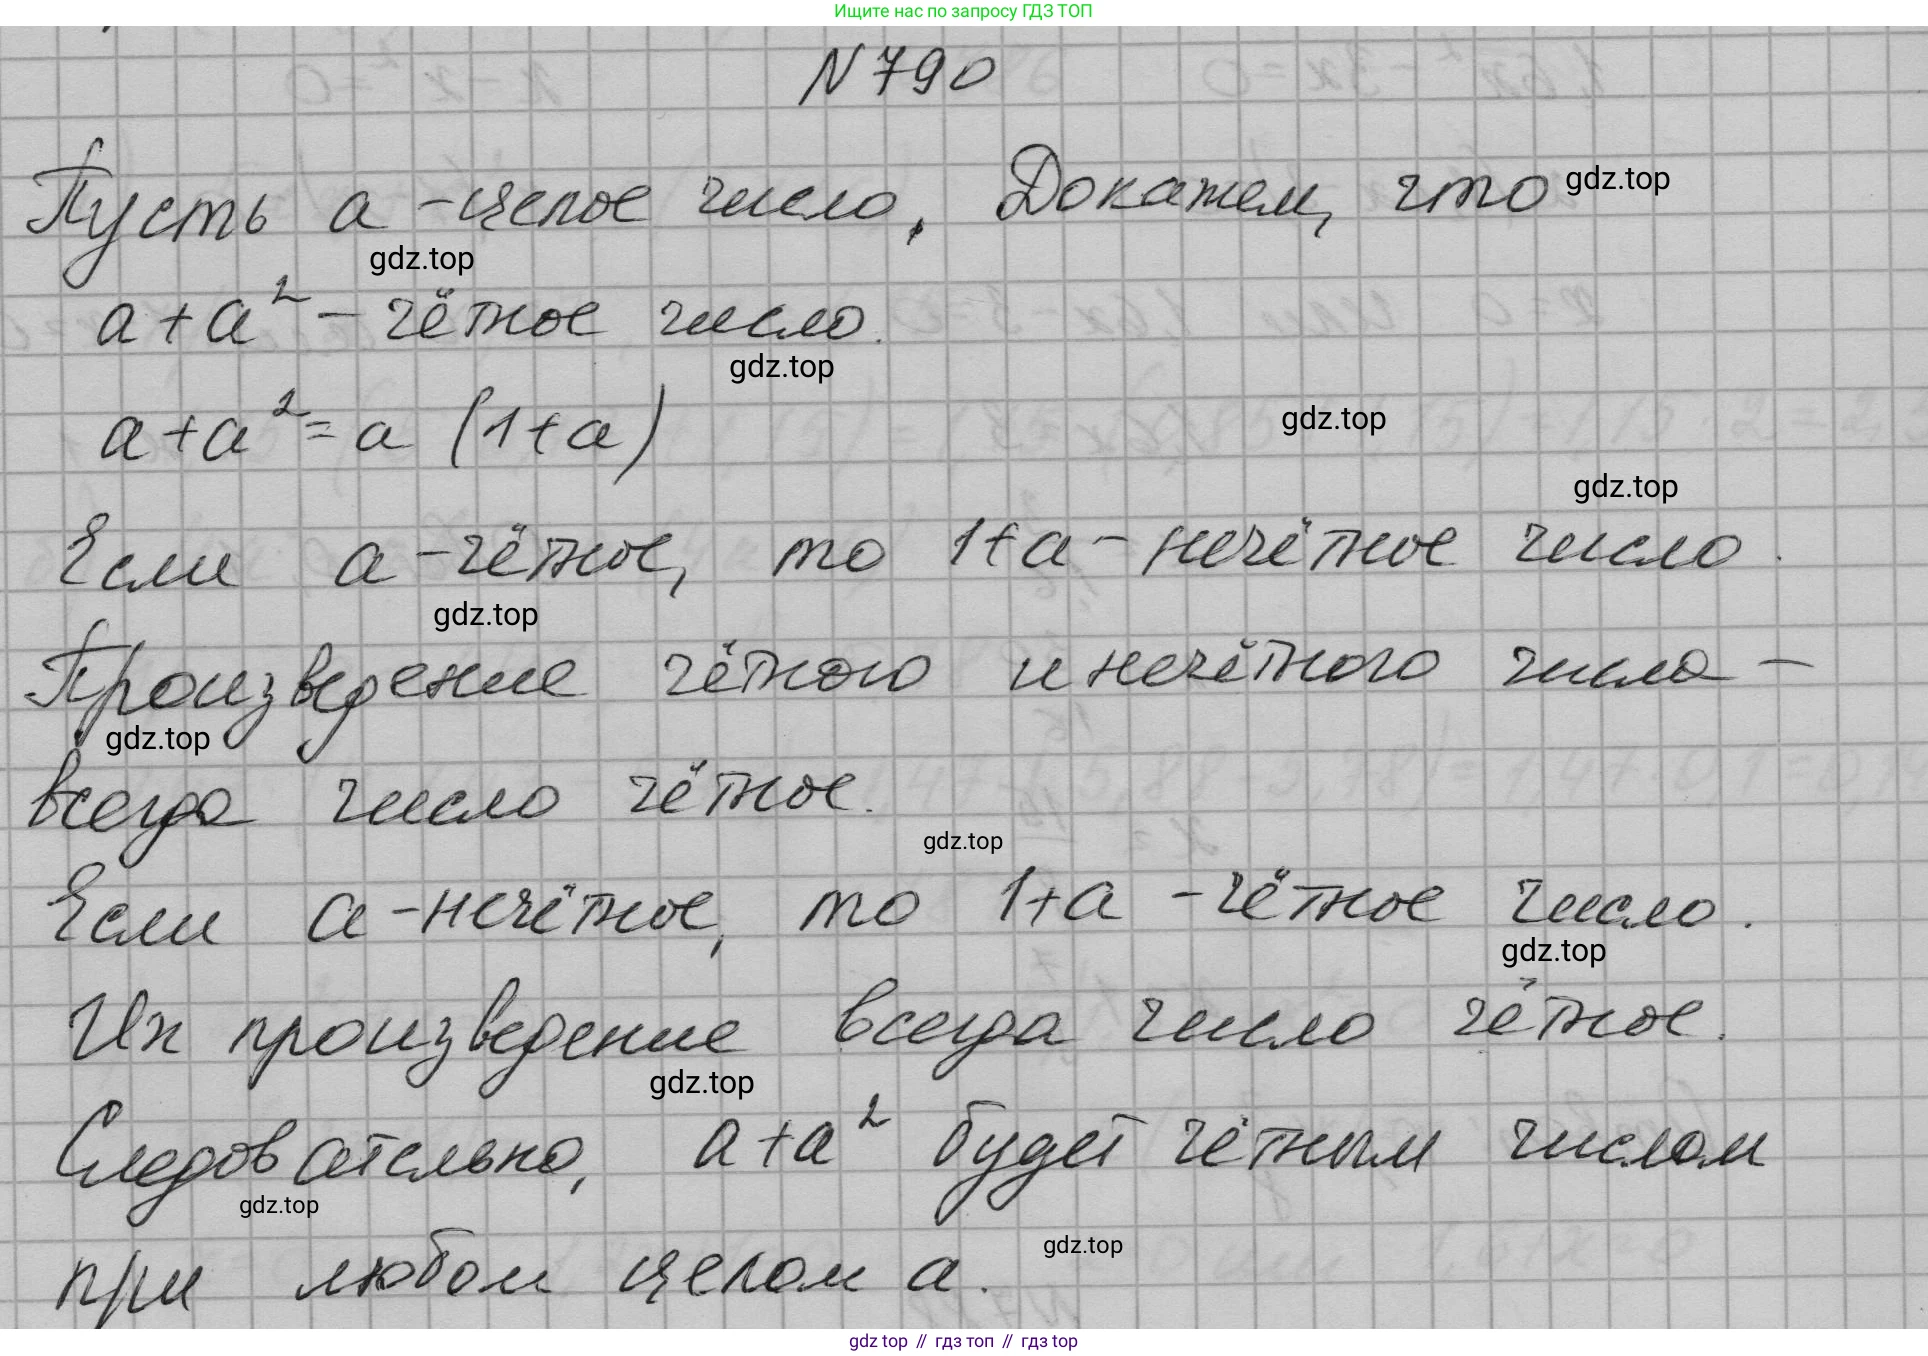 Ищите нас по запросу ГДЗ ТОП
N 790
Пусть a - целое число, Докажем, что gdz.top
gdz.top
a + a² - чётное число.
gdz.top
a + a² = a (1 + a)
gdz.top
gdz.top
Если a - чётное, то 1 + a - нечётное число.
gdz.top
Произведение чётного и нечётного числа -
gdz.top
всегда число чётное.
gdz.top
Если a - нечётное, то 1 + a - чётное число.
gdz.top
Их произведение всегда число чётное.
gdz.top
Следовательно, a + a² будет чётным числом
gdz.top
gdz.top
при любом целом a.
gdz.top // гдз топ // гдз top